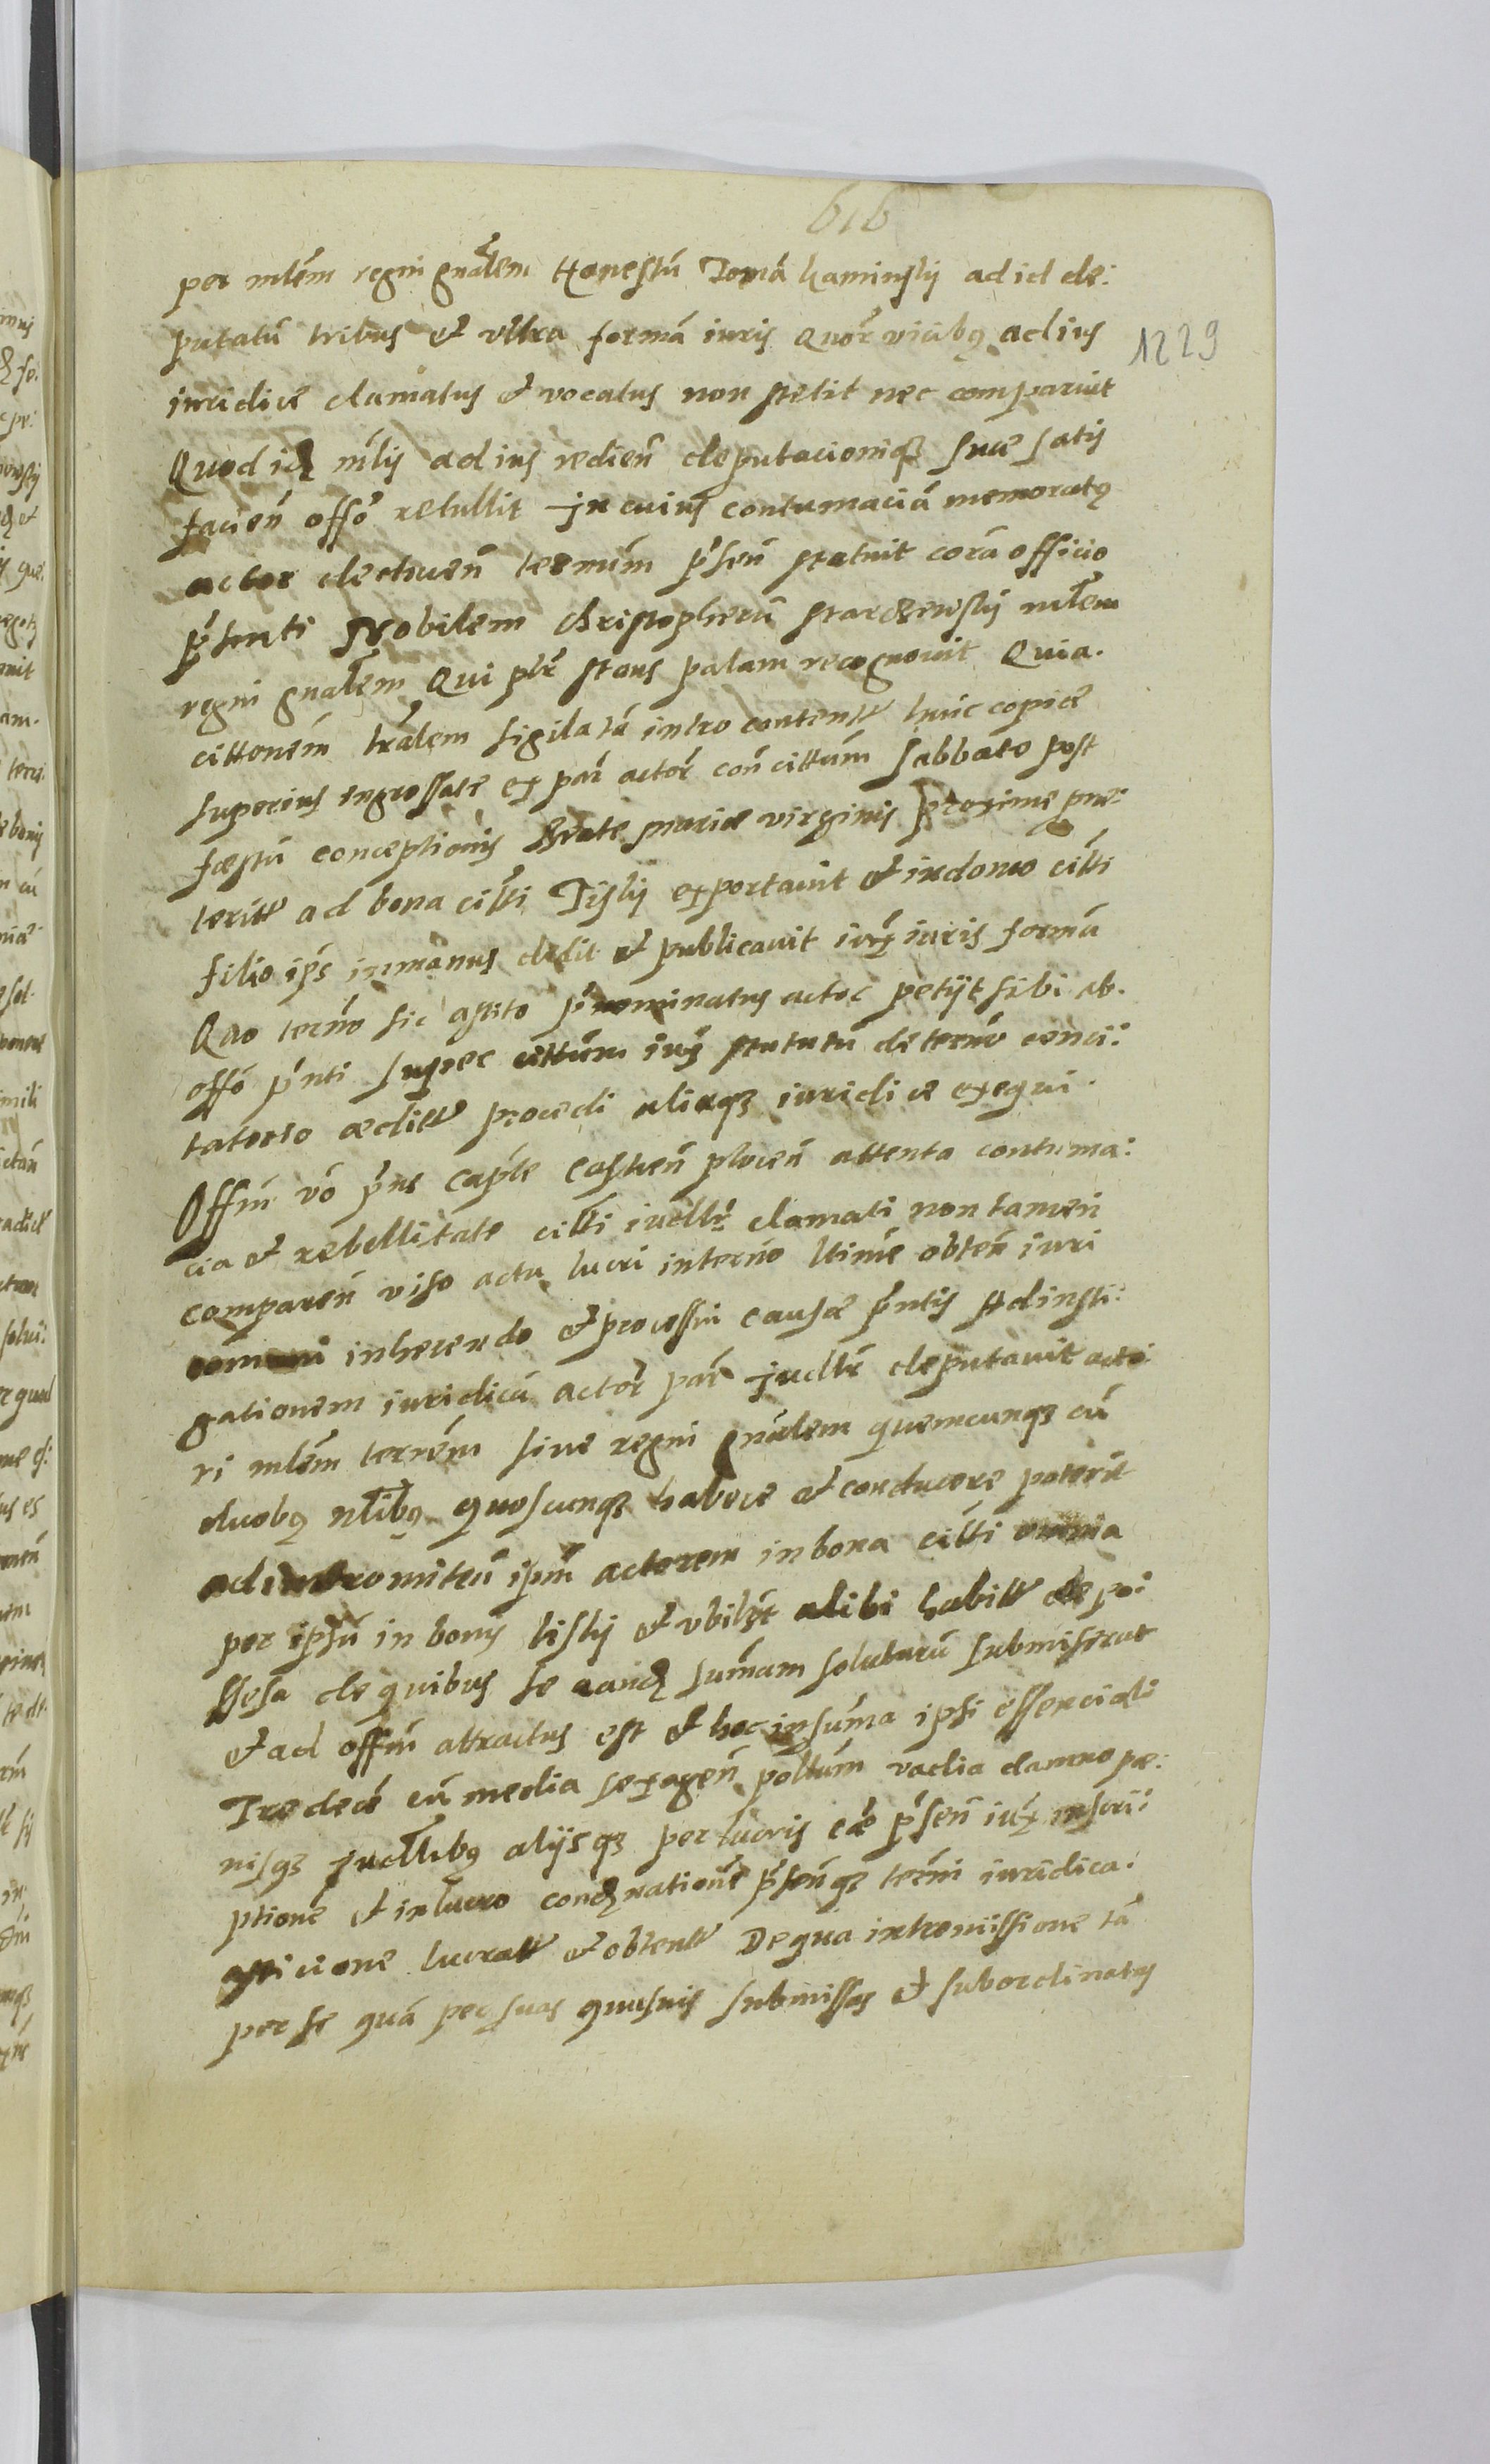 616
1229
per mlem regni gnalem Honestu Toma Kaminsky ad id de:
putatu tribus et vltra forma iuris quor vicibq ad ius
iuridice clamatus et vocatus non stetit nec comparuit
Quod idz mlis ad ius redien deputacionisqz sue satis
facien offo retullit In cuius contumacia memoratq
actor decreuen termim psen statuit cora officio
psenti Nobilem Christopheru Starczewsky mlem
regni gnalem Qui plr stans palam recognouit Quia.
cittonem lralem sigilata intro content huic copie
superius ingrossate ex par actor con cittum sabbato post
fæstu conceptionis Beate Mariæ virginis proxime præ:
teritt ad bona citti Tisky exportauit et in domo citti
filio ips in manus dedit et publicauit iux iuris forma
Quo termo sic astito pnominatus actor petijt sibi ab.
offo pnti super cittum iux statutu de termo conci:
tatorio æditt procedi aliaqz iuridice exequi.
Offm vo pns Caple Castren plocen attenta contuma:
cia et rebellitate citti iudllr clamati non tamen
comparen viso actu lucri in termo ltime obten iuri
comuni inherendo et processui causæ pntis Ad insti:
gationem iuridica actor par judllr deputauit acto:
ri mlem terrem siue regni gnalem quemcunqz cu
duobq nlibq quoscunqz habere et conducere poterit
ad intromitten ipm actorem in bona citti omnia
per ipsu in bonis Tisky et vbilzt alibi habitt de po:
ssesa de quibus se eandz sumam soluturu submiserat
et ad offm attractus est et hoc in suma ipsi essencialj
Tredecē cu media sexagen pollum vadia damno pæ:
nisqz judllibq alijsqz per lucris cæ psen iux inscri:
ptione et in lucro condznatione psenqz termi iuridica.
asticione lucratt et obtentt De qua intromissione ta
per se qua per suas quasuis submissas et subordinatas